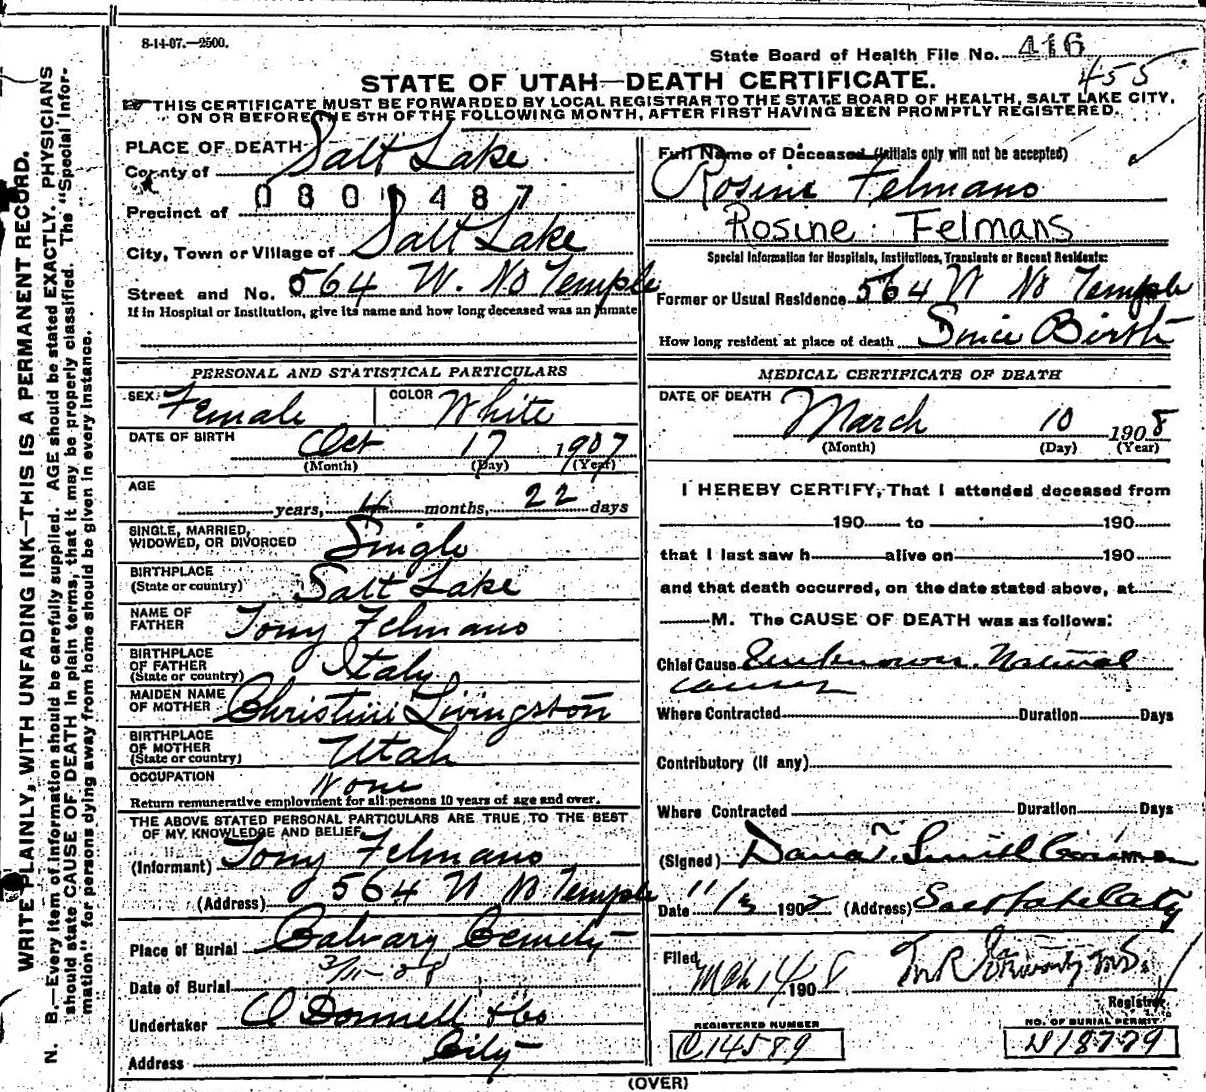 8-14-07.—2500.
State Board of Health File No. 416
455
STATE OF UTAH—DEATH CERTIFICATE.
THIS CERTIFICATE MUST BE FORWARDED BY LOCAL REGISTRAR TO THE STATE BOARD OF HEALTH, SALT LAKE CITY,
ON OR BEFORE THE 5TH OF THE FOLLOWING MONTH, AFTER FIRST HAVING BEEN PROMPTLY REGISTERED.
WRITE PLAINLY, WITH UNFADING INK—THIS IS A PERMANENT RECORD.
N. B.—Every item of information should be carefully supplied. AGE should be stated EXACTLY. PHYSICIANS
should state CAUSE OF DEATH in plain terms, that it may be properly classified. The "Special Infor-
mation" for persons dying away from home should be given in every instance.
PLACE OF DEATH
County of Salt Lake
0801487
Precinct of
City, Town or Village of Salt Lake
Street and No. 564 W. No Temple
If in Hospital or Institution, give its name and how long deceased was an inmate
PERSONAL AND STATISTICAL PARTICULARS
SEX Female COLOR White
DATE OF BIRTH Oct 17 1907
(Month) (Day) (Year)
AGE
years, 4 months, 22 days
SINGLE, MARRIED,
WIDOWED, OR DIVORCED Single
BIRTHPLACE
(State or country) Salt Lake
NAME OF
FATHER Tony Felmans
BIRTHPLACE
OF FATHER
(State or country) Italy
MAIDEN NAME
OF MOTHER Christine Livingston
BIRTHPLACE
OF MOTHER
(State or country) Utah
OCCUPATION None
Return remunerative employment for all persons 10 years of age and over.
THE ABOVE STATED PERSONAL PARTICULARS ARE TRUE TO THE BEST
OF MY KNOWLEDGE AND BELIEF
(Informant) Tony Felmans
(Address) 564 W No Temple
Place of Burial Calvary
Date of Burial
Undertaker O'Donnell & Co
Address City
Full Name of Deceased (Initials only will not be accepted)
Rosine Felmans
Rosine Felmans
Special Information for Hospitals, Institutions, Transients or Recent Residents:
Former or Usual Residence 564 W No Temple
How long resident at place of death Since Birth
MEDICAL CERTIFICATE OF DEATH
DATE OF DEATH March 10 1908
(Month) (Day) (Year)
I HEREBY CERTIFY, That I attended deceased from
190 to 190
that I last saw h alive on 190
and that death occurred, on the date stated above, at
M. The CAUSE OF DEATH was as follows:
Chief Cause Unknown. Natural
causes
Where Contracted Duration Days
Contributory (if any)
Where Contracted Duration Days
(Signed) Dana T. Smith M. D.
Date 11/3 190 (Address) Salt Lake City
Filed Mch 14 1908
Registrar
REGISTERED NUMBER NO. OF BURIAL PERMIT
C14589
(OVER)